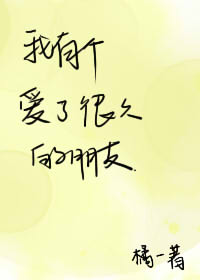 我有个
爱了很久
的朋友.
橘一著